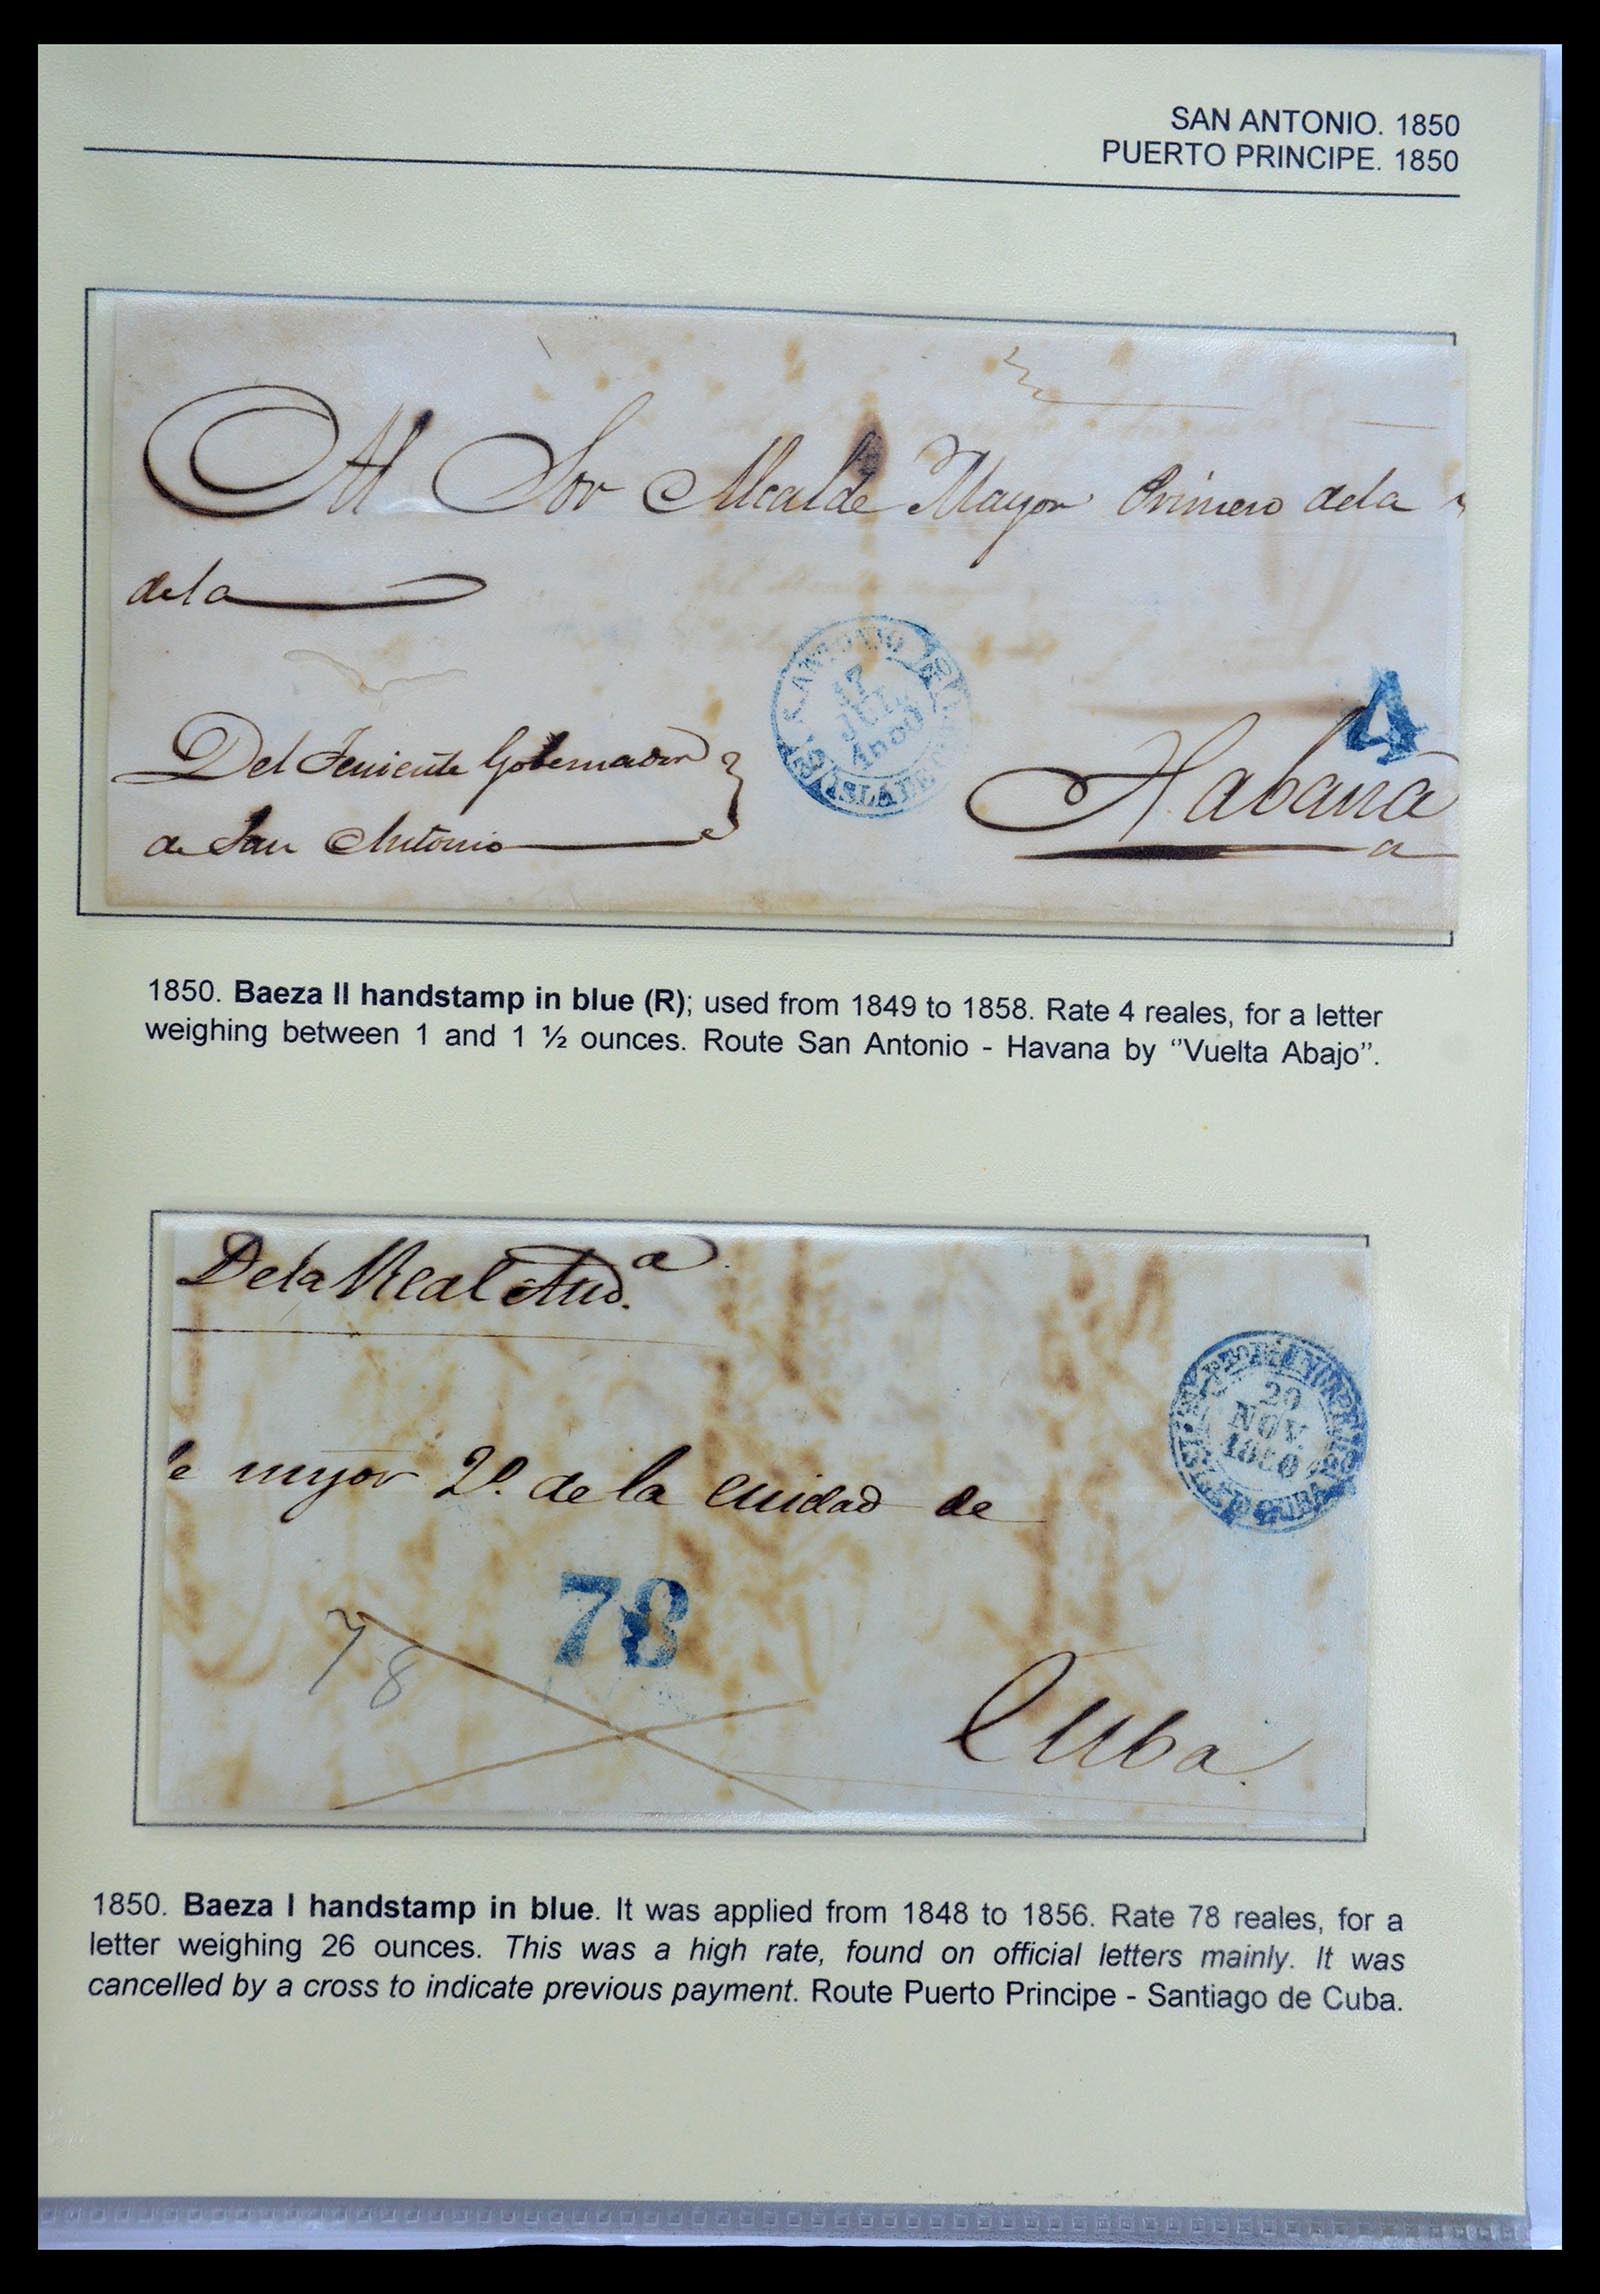 SAN ANTONIO. 1850
PUERTO PRINCIPE. 1850
Al Sor Alcalde Mayor Primero dela
dela
S. ANTONIO
17
JUL
1850
ISLA DE
4
Del Teniente Gobernador
de San Antonio
Habana
a
1850. Baeza II handstamp in blue (R); used from 1849 to 1858. Rate 4 reales, for a letter
weighing between 1 and 1 ½ ounces. Route San Antonio - Havana by ‘’Vuelta Abajo’’.
De la Real Auda.
20
NOV.
1850
CUBA
le mayor 2º. de la cuidad de
78
78
Cuba.
1850. Baeza I handstamp in blue. It was applied from 1848 to 1856. Rate 78 reales, for a
letter weighing 26 ounces. This was a high rate, found on official letters mainly. It was
cancelled by a cross to indicate previous payment. Route Puerto Principe - Santiago de Cuba.